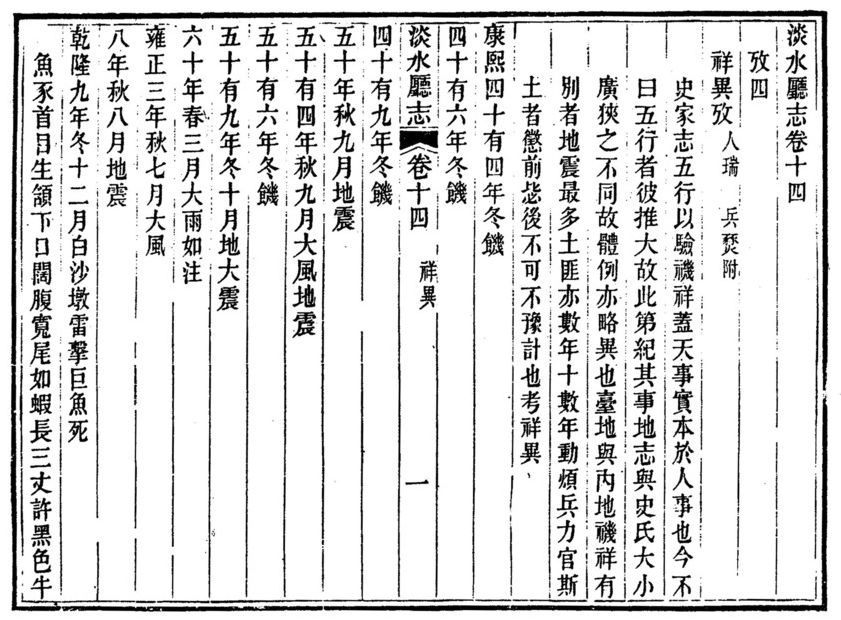 淡水廳志卷十四
攷四
祥異攷 人瑞 兵燹附
史家志五行以驗禨祥蓋天事實本於人事也今不
曰五行者彼推大故此第紀其事地志與史氏大小
廣狹之不同故體例亦略異也臺地與內地禨祥有
別者地震最多土匪亦數年十數年動煩兵力官斯
土者懲前毖後不可不豫計也考祥異
康熙四十有四年冬饑
四十有六年冬饑
淡水廳志 卷十四 祥異 一
四十有九年冬饑
五十年秋九月地震
五十有四年秋九月大風地震
五十有六年冬饑
五十有九年冬十月地大震
六十年春三月大雨如注
雍正三年秋七月大風
八年秋八月地震
乾隆九年冬十二月白沙墩雷擊巨魚死
魚豕首目生頷下口闊腹寬尾如蝦長三丈許黑色牛